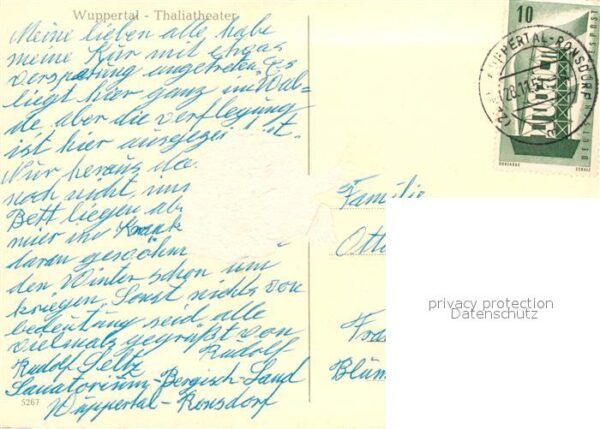 Wuppertal - Thaliatheater
Meine lieben alle, habe
meine Kur mit etwas
verspätung angetreten. Es
liegt hier ganz im Wal-
de aber die verflegung
ist hier ausgezei t.
Nur heraus da
noch nicht, mu
Bett liegen ab
mier ihr Krank
daran gewöhn
den Winter schon um
kriegen. Sonst nichts von
bedeutung seid alle
vielmals gegrüßt von
Rudolf Seltz Rudolf
Sanatorium-Bergisch-Land
Wuppertal-Ronsdorf
5267
10
DEUTSCHE BUNDESPOST
WUPPERTAL-RONSDORF
28.11.5
Familie
Otto
Fra
Blum
privacy protection
Datenschutz